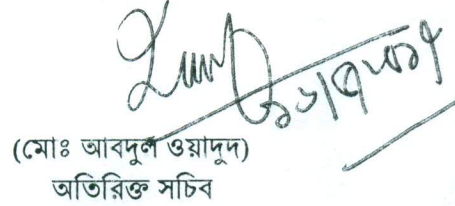 (মোঃ আবদুল ওয়াদুদ)
অতিরিক্ত সচিব